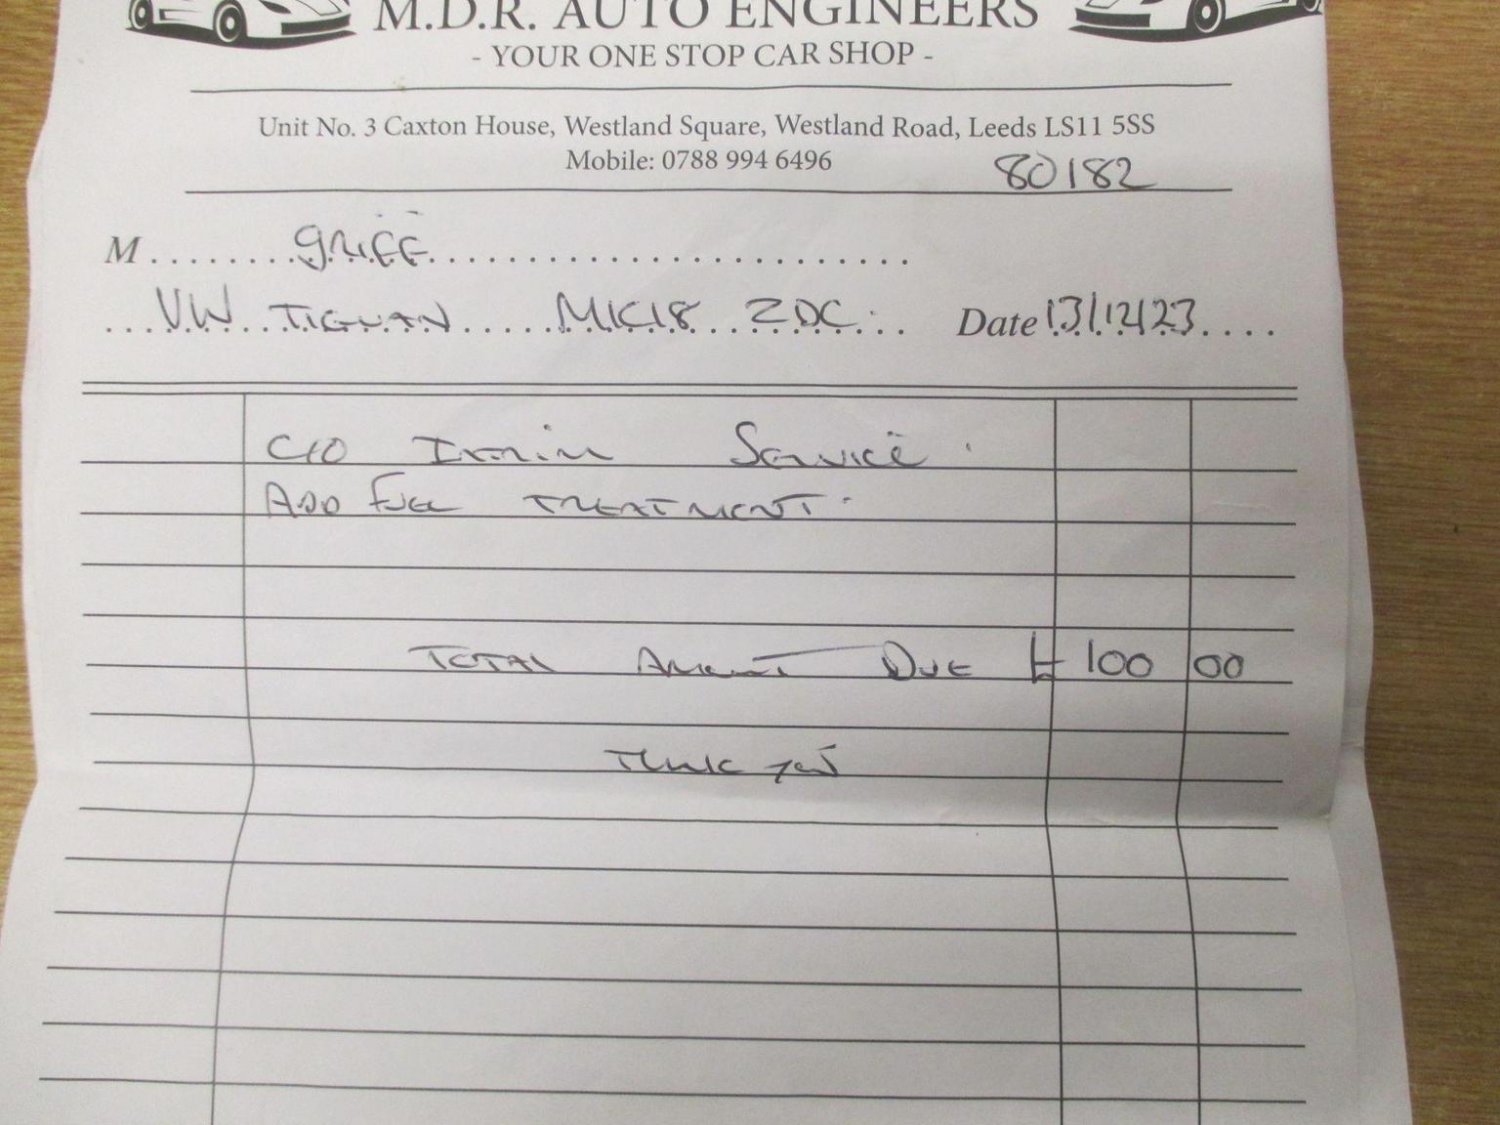 M.D.R. AUTO ENGINEERS
- YOUR ONE STOP CAR SHOP -
Unit No. 3 Caxton House, Westland Square, Westland Road, Leeds LS11 5SS
Mobile: 0788 994 6496
80182
M........GRIFF..........................
...VW TIGUAN.....MK18 ZDC... Date 13/12/23....
C/O Interim Service.
ADD FUEL TREATMENT.
TOTAL Amount Due £ 100 00
Thank you